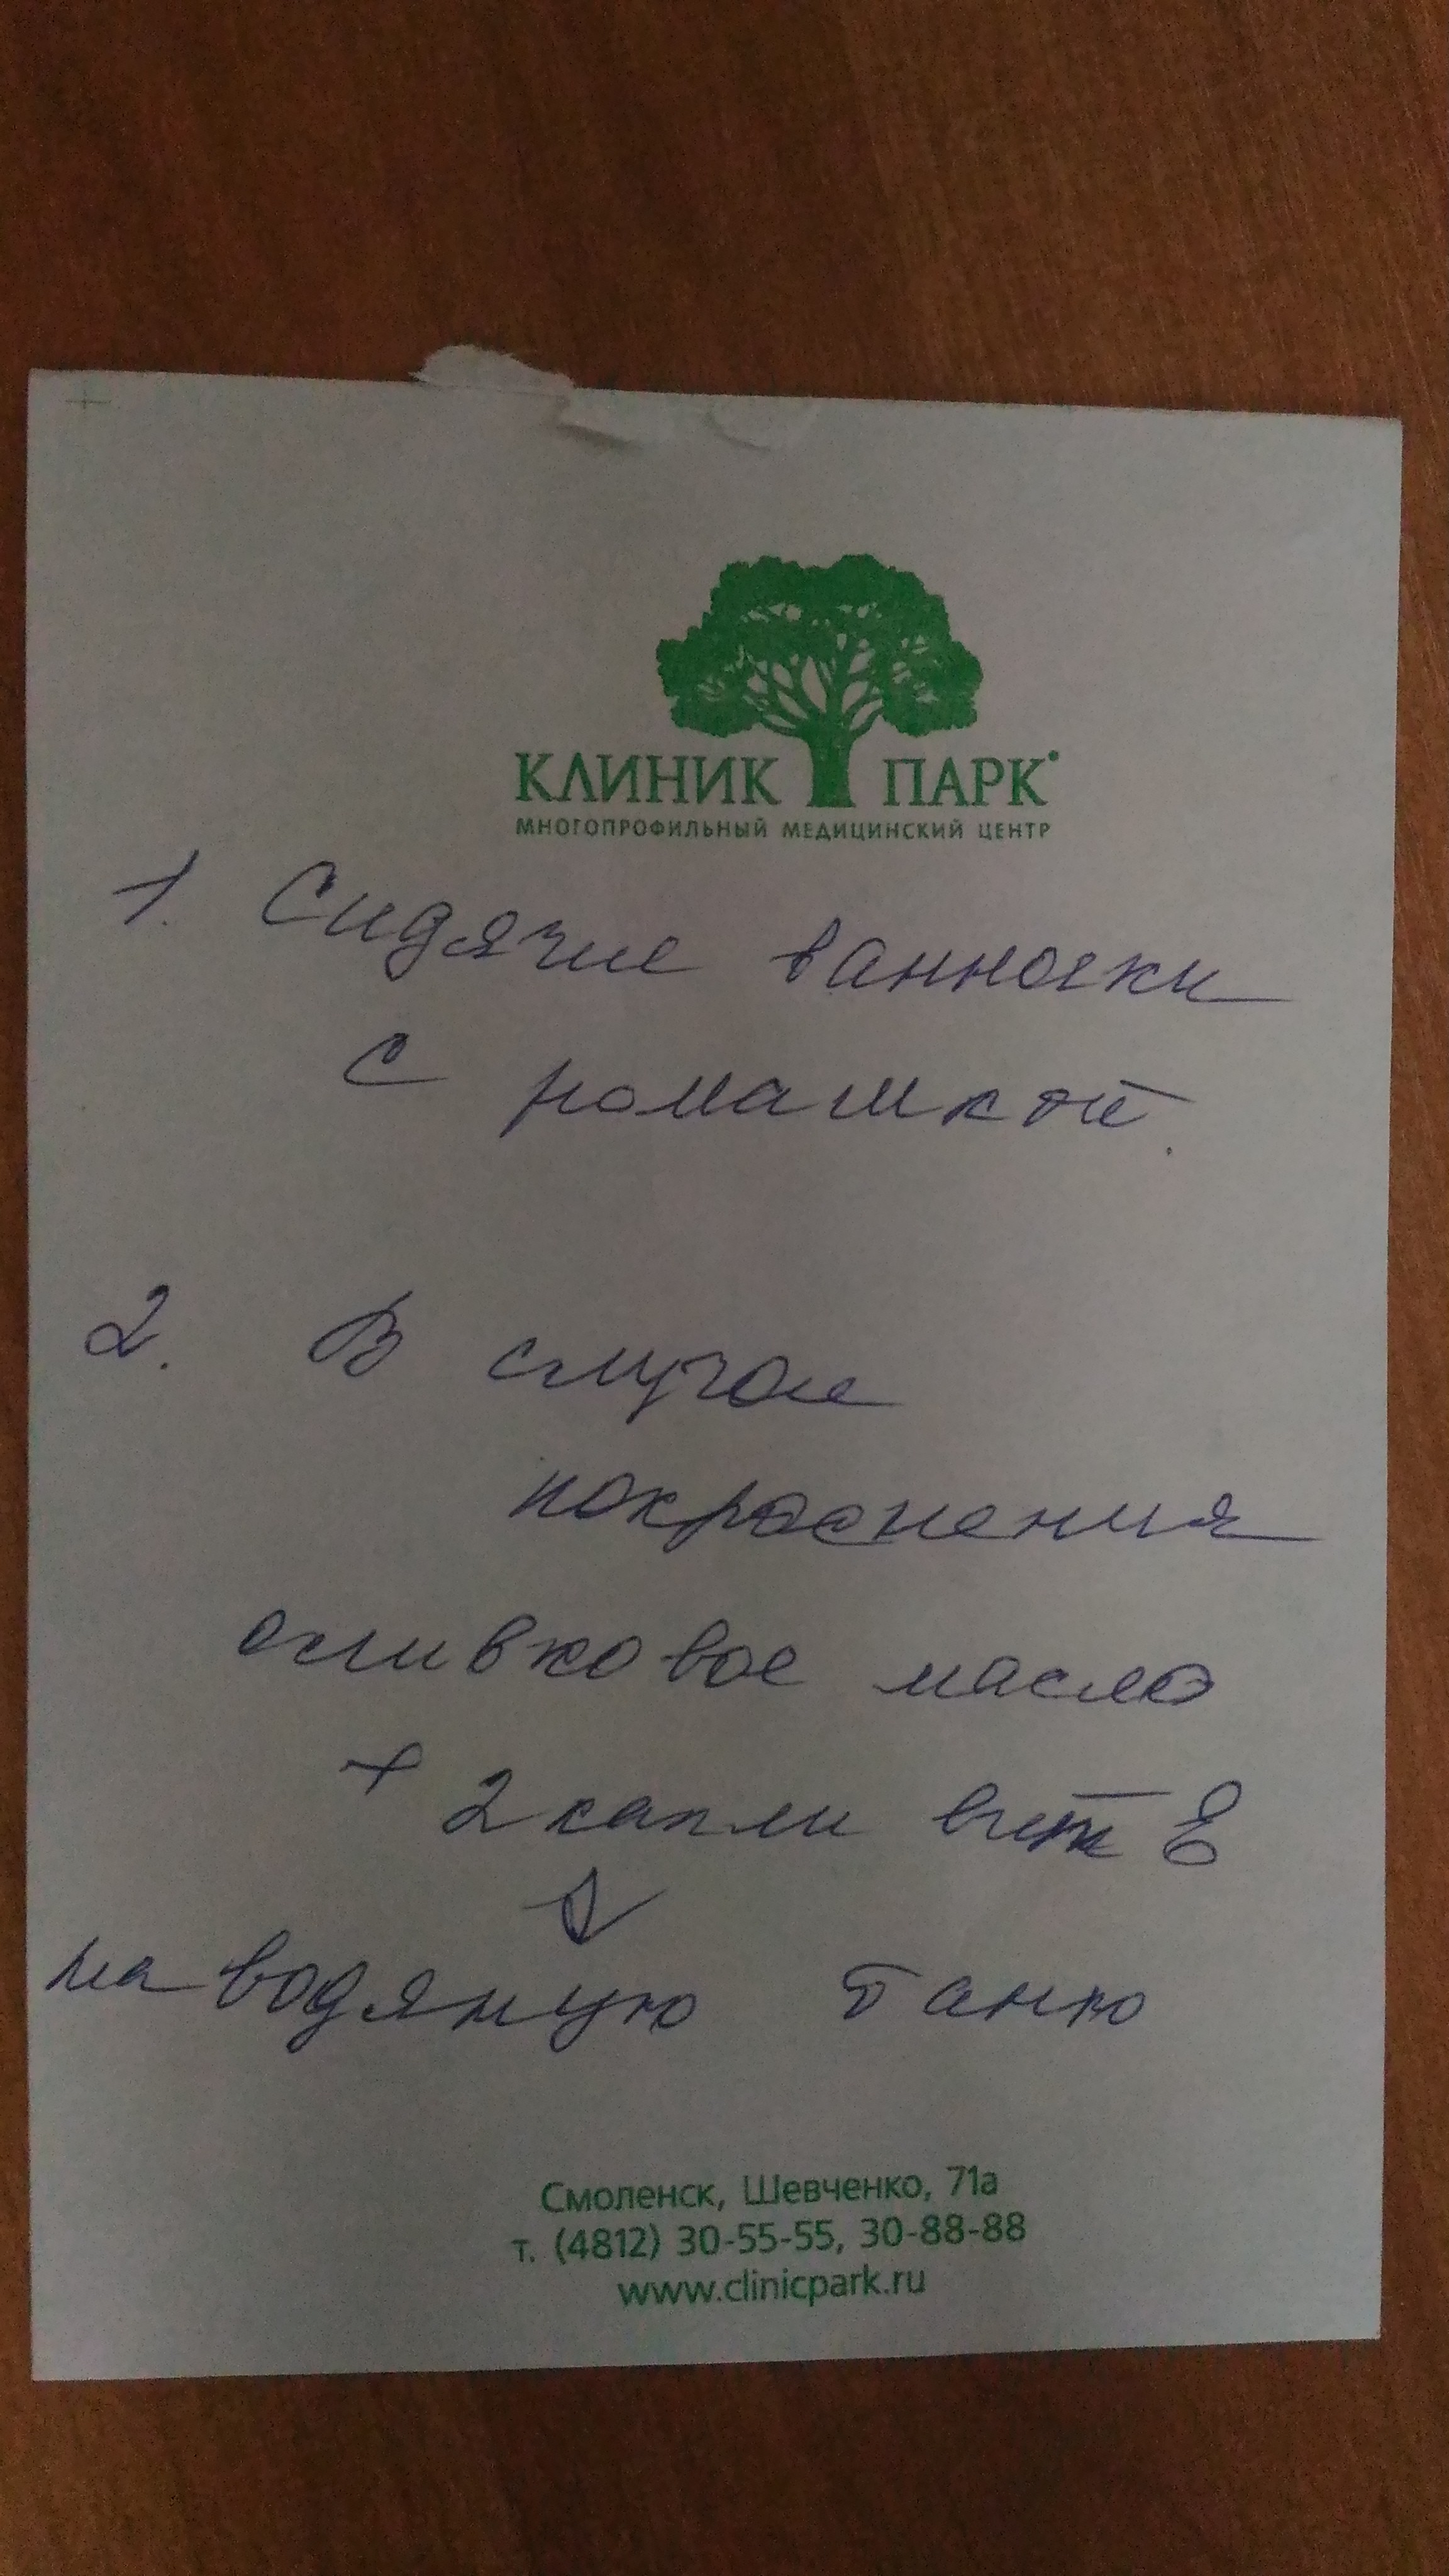 КЛИНИК ПАРК
МНОГОПРОФИЛЬНЫЙ МЕДИЦИНСКИЙ ЦЕНТР
1. Сидячие ванночки
с ромашкой.
2. В случае
покраснения
оливковое масло
+ 2 капли вит Е
на водяную баню
Смоленск, Шевченко, 71а
т. (4812) 30-55-55, 30-88-88
www.clinicpark.ru